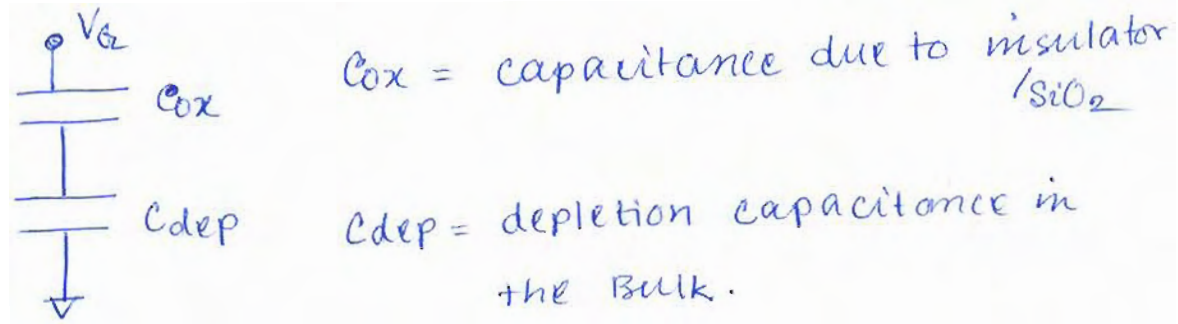 VG
Cox
Cox = capacitance due to insulator
/SiO2
Cdep
Cdep = depletion capacitance in
the Bulk.